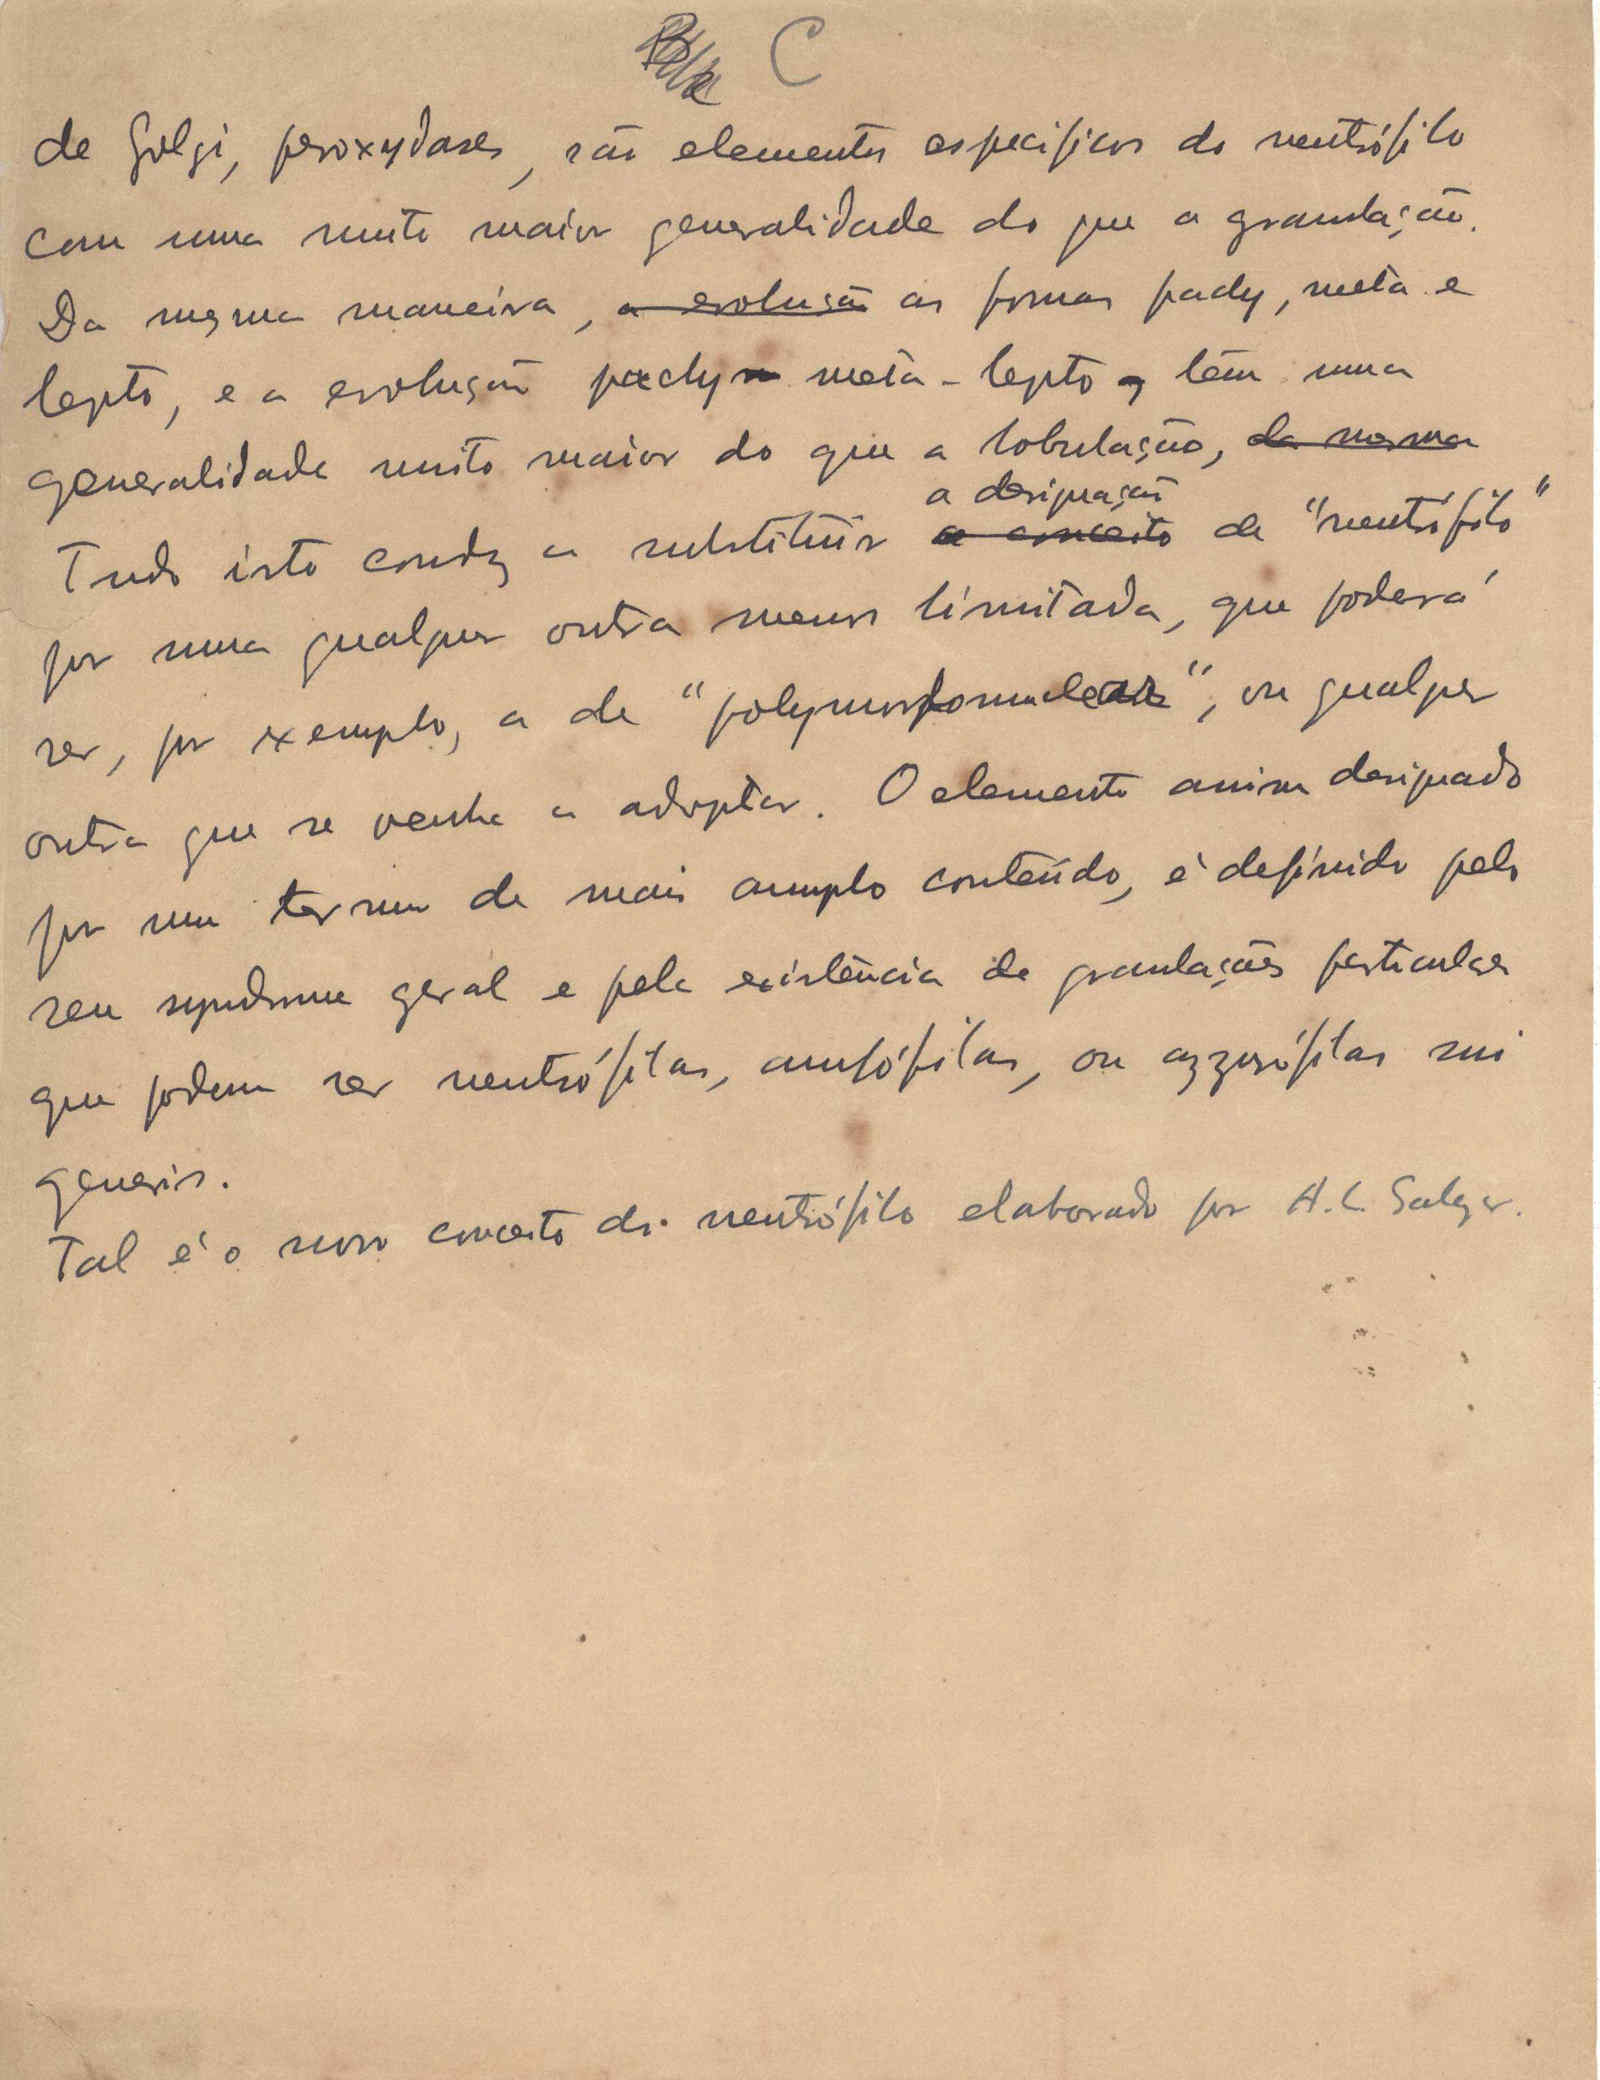 C
de Golgi, peroxydases, são elementos especificos do neutrófilo
com uma muito maior generalidade do que a granulação.
Da mesma maneira, a evolução as formas pachy, meta e
lepto, e a evolução pachy meta-lepto, têm uma
generalidade muito maior do que a lobulação, da mesma
a designação
Tudo isto conduz a substituir o conceito de "neutrófilo"
por uma qualquer outra menos limitada, que poderá
ser, por exemplo, a de "polymorfonuclear", ou qualquer
outra que se venha a adoptar. O elemento assim designado
por um termo de mais amplo conteúdo, é definido pelo
seu syndrome geral e pela existência de granulações particulares
que podem ser neutrófilas, amfófilas, ou azzurófilas sui
generis.
Tal é o novo conceito do neutrófilo elaborado por A. L. Salazar.